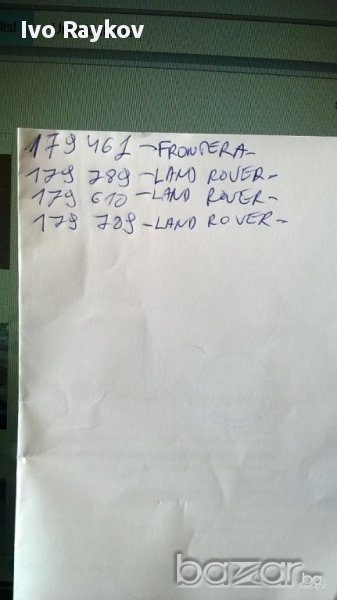 Ivo Raykov
179 461 - FRONTERA -
179 789 - LAND ROVER -
179 610 - LAND ROVER -
179 789 - LAND ROVER -
bazar.bg